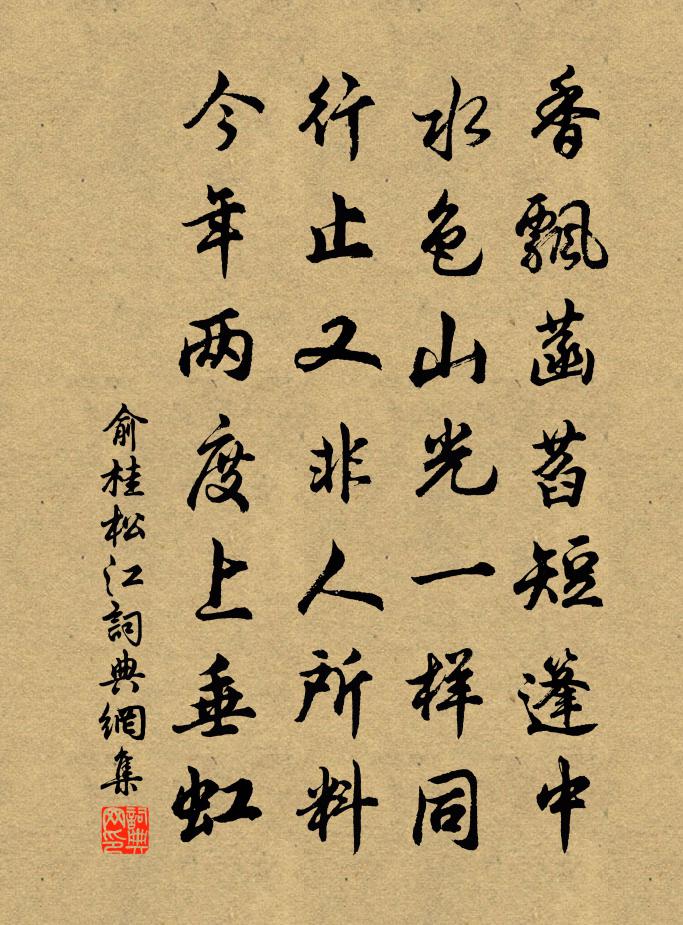 香飄菡萏短篷中
水色山光一样同
行止又非人所料
今年两度上垂虹
俞桂松江詞典網集
詞典网印